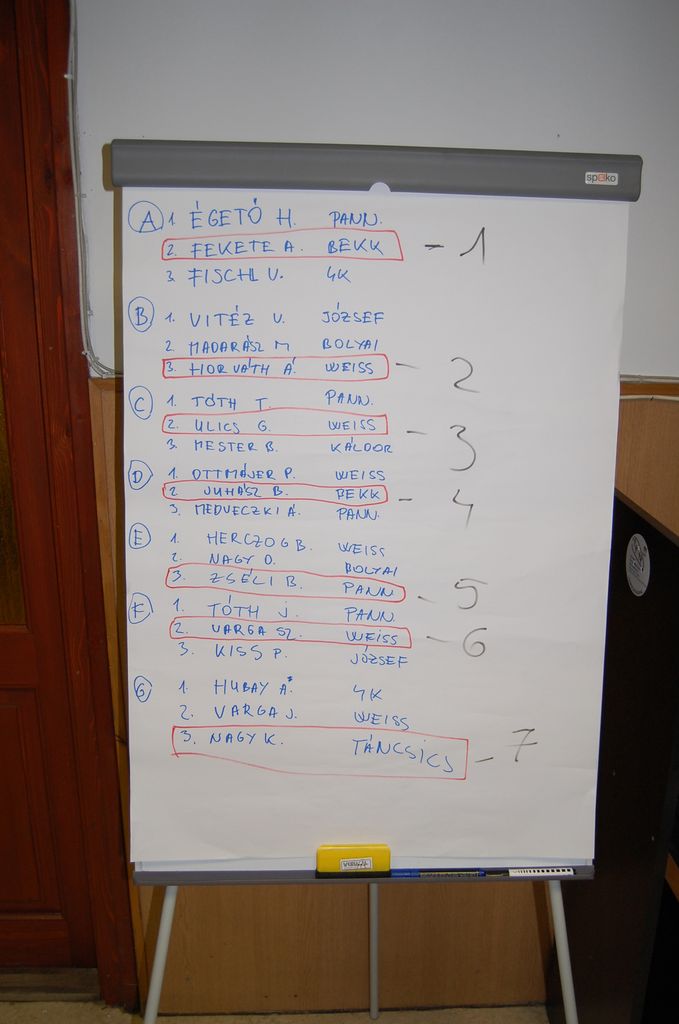 speko
A 1. ÉGETŐ H. PANN.
2. FEKETE A. BEKK - 1
3. FISCHL V. 4K
B 1. VITÉZ V. JÓZSEF
2. MADARÁSZ M BOLYAI
3. HORVÁTH Á. WEISS - 2
C 1. TÓTH T. PANN.
2. ULICS G. WEISS - 3
3. MESTER B. KÁLDOR
D 1. OTTMÁJER P. WEISS
2. JUHÁSZ B. BEKK - 4
3. MEDVECZKI Á. PANN.
E 1. HERCZOG B. WEISS
2. NAGY D. BOLYAI
3. ZSÉLI B. PANN - 5
F 1. TÓTH J. PANN.
2. VARGA SZ. WEISS - 6
3. KISS P. JÓZSEF
G 1. HUBAY Á. 4K
2. VARGA J. WEISS
3. NAGY K. TÁNCSICS - 7